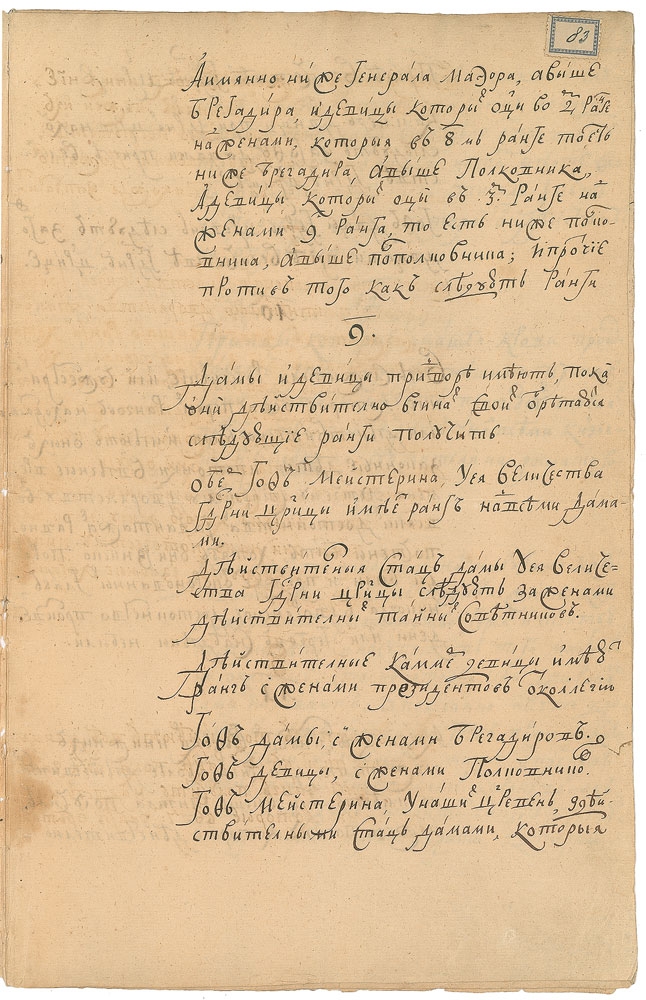 83
Аимянно ниже генерала маэора, авыше
брегадира, идевицы которые оцы во 2м рангѣ
надженами, которыя въ 8 мъ ранге тоесть
ниже брегадира, авыше Полковника,
Адевицы которые оцы въ 3м Ранге надъ
женами 9г Ранга, то есть ниже полко-
вника, авыше подполковника; ипрочие
противъ того какъ слѣдуютъ Ранги
9.
Дамы идевицы придворѣ имѣютъ, пока
они дѣйствително вчинахъ своихъ обретаются
слѣдующие ранги получить
оберъ Гофъ Мейстерина, Уея величества
Гдрни црицы имѣетъ рангъ надвсѣми дама-
ми.
Дѣйствителныя Стацъ дамы Уея величе=
ства Гдрни црицы слѣдуютъ заженами
дѣйствителныхъ тайныхъ совѣтниковъ.
Дѣйствителные каммеръ девицы имѣютъ
рангъ сженами президентовъ отколлегии
Гофъ дамы, сженами брегадировъ.
Гофъ девицы, сженами Полковниковъ.
Гофъ Мейстерина, Унашихъ црвенъ, здѣй-
ствителными стацъ дамами, которыя